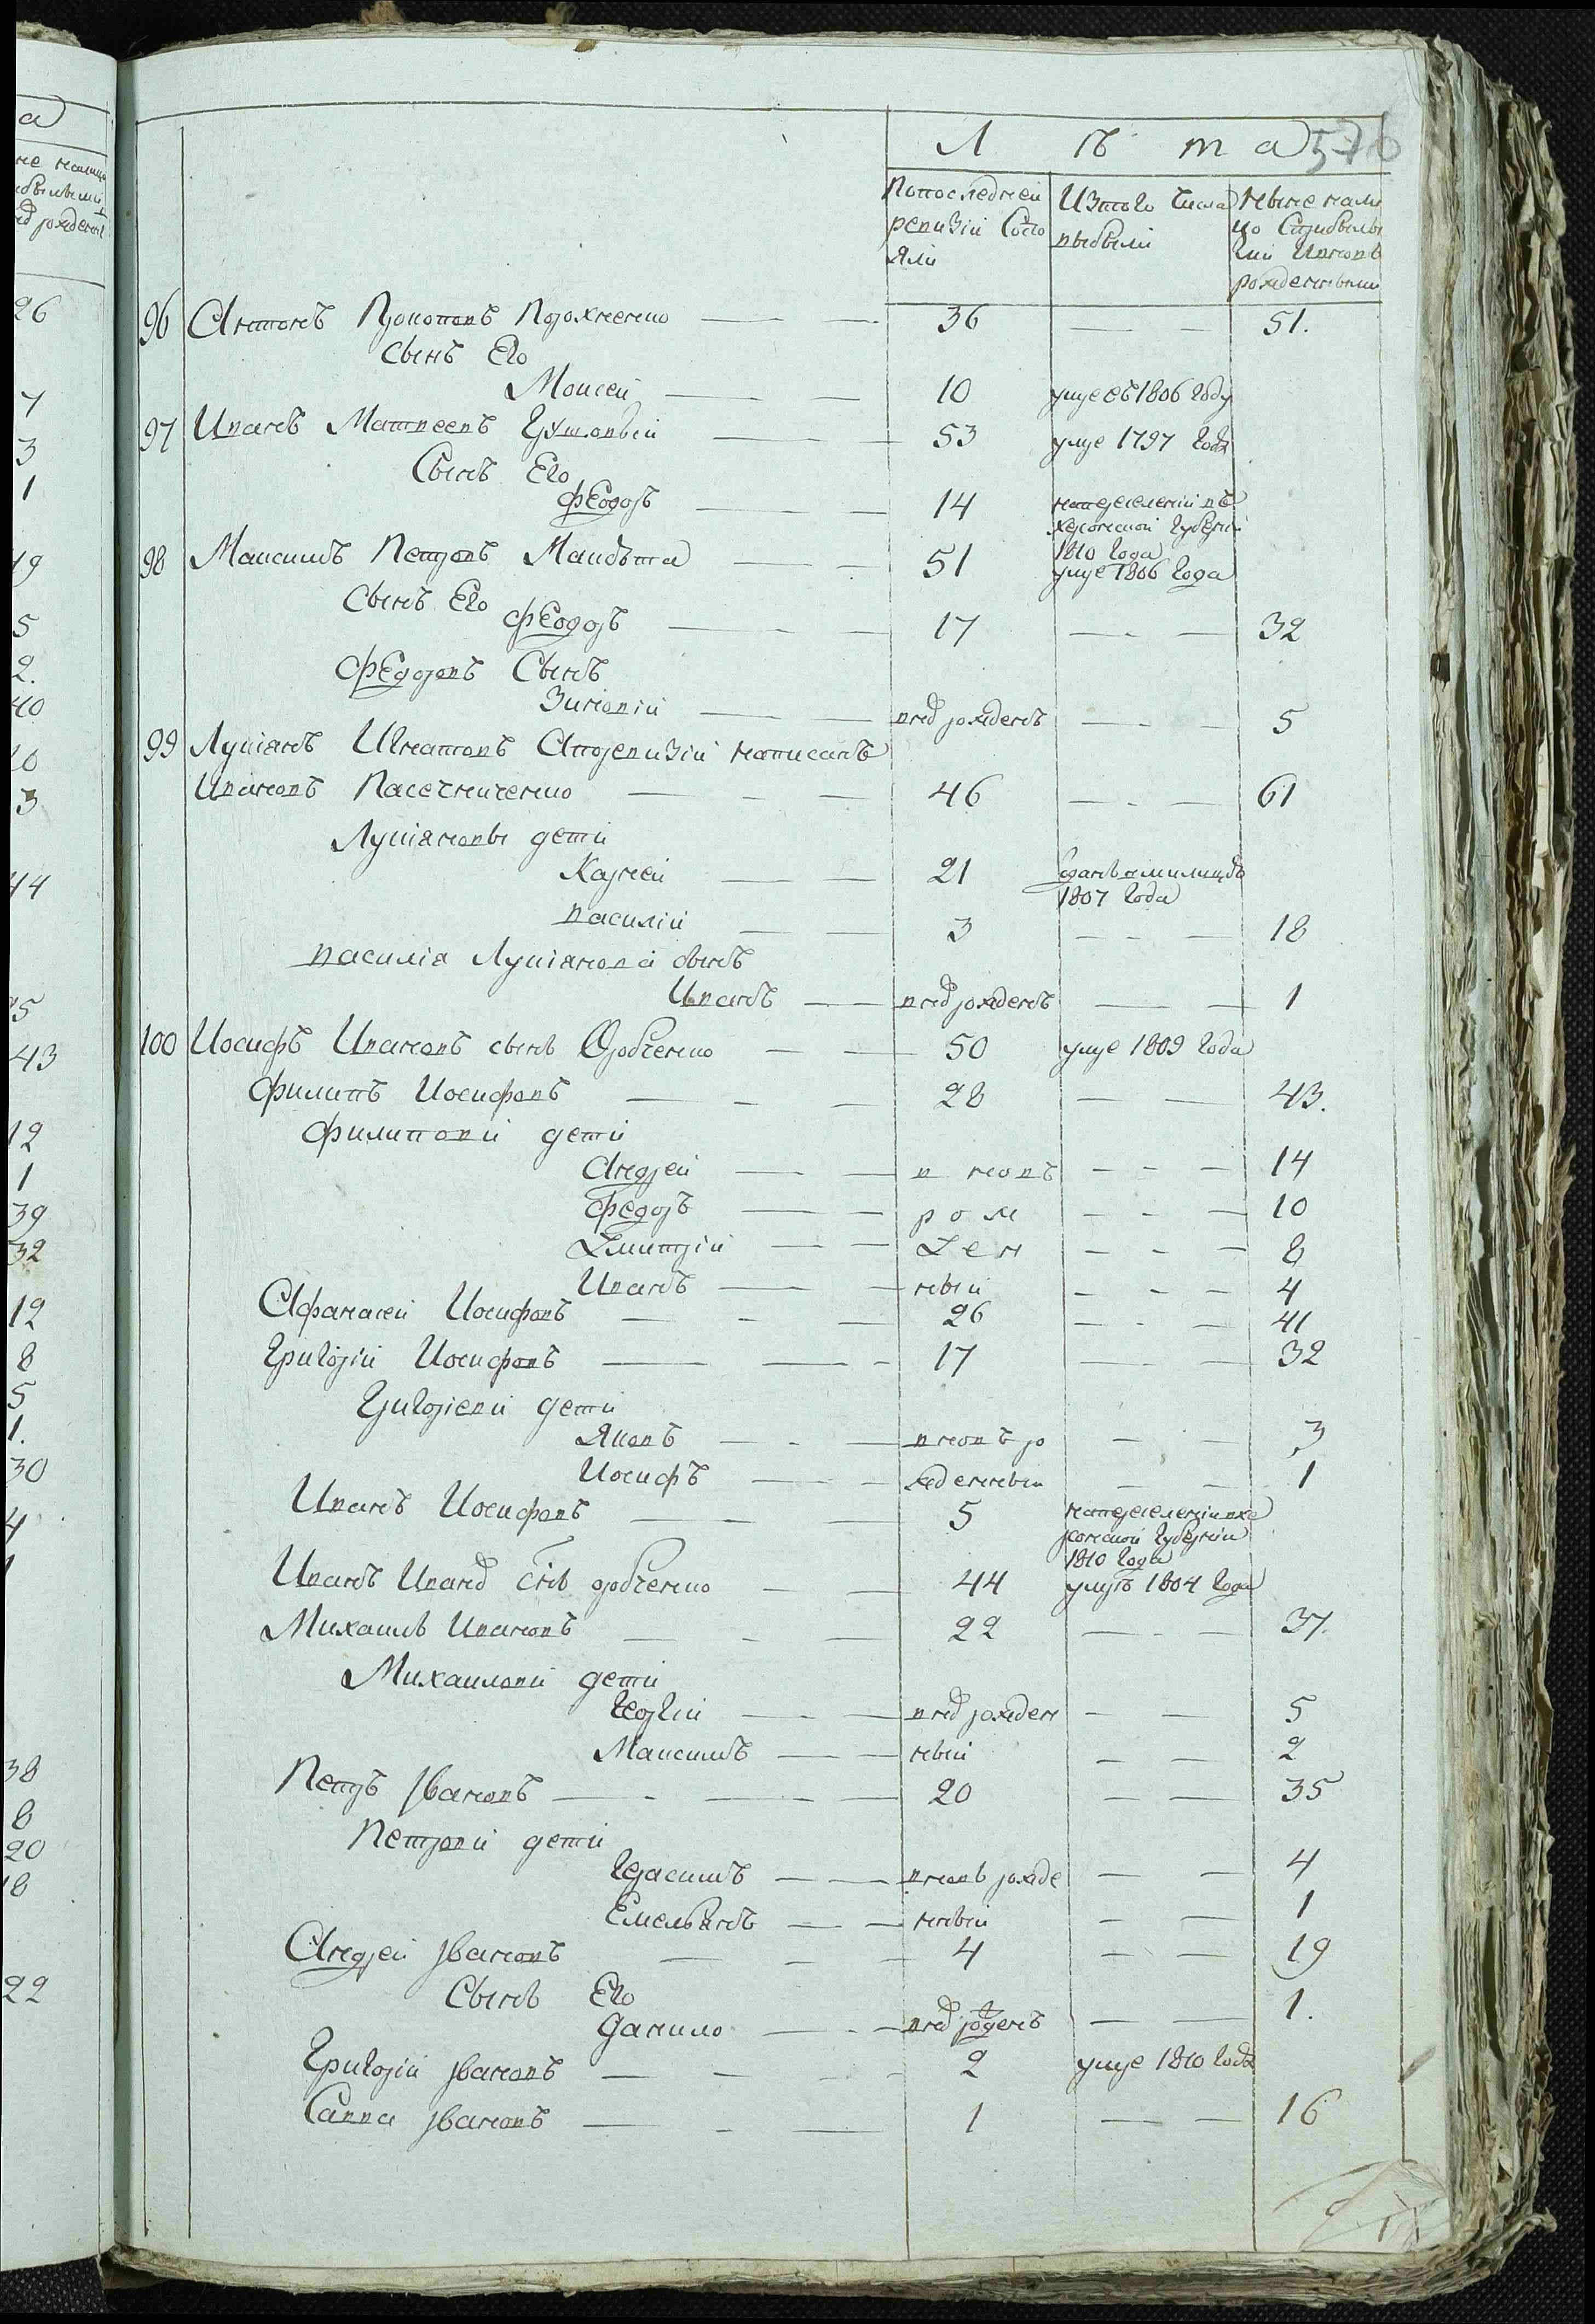 Лѣта
576
Попоследней ревизіи Состояли
Изтого Числа выбыли
Ныне нали цо Сприбылы ми Ивновь рожденными
96 Антонъ Прокоповъ Порохненко — 36 — 51.
Сынъ Его
Моисей — 10 умре въ 1806 году
97 Иванъ Матвеевъ — 53 умре 1797 года
Сынъ Его
Феодоръ — 14 напереселеніи въ
херсонской Губерніи
1810 года
98 Максимъ Петровъ — 51 умре 1806 года
Сынъ Его Феодоръ — 17 — 32
Федоровъ Сынъ
Зиновій — внѡ рожденъ — 5
99 Лукіянъ Игнатовъ Апоревизіи написанъ
Ивановъ Пасечниченко — 46 — 61
Лукіяновы дети
Карней — 21 зданъ вмилицію
1807 года
василій — 3 — 18
василія Лукіянова сынъ
Иванъ — внѡ рожденъ — 1
100 Иосифъ Ивановъ сынъ Оробченко — 50 умре 1809 года
Филипъ Иосифовъ — 28 — 43.
Филиповы дети
Андрей — в новъ — 14
Федоръ — р о ж — 10
Дмитрій — д е н — 8
Иванъ — ный — 4
Афанасей Иосифовъ — 26 — 41
Григорій Иосифовъ — 17 — 32
Григоріевы дети
Яковъ — вновъ ро — 3
Иосифъ — жденный — 1
Иванъ Иосифовъ — 5 напереселеніи вхе
рсонской Губерніи
1810 года
Иванъ Иванѡ Снъ оробченко — 44 умръ 1804 года
Михаилъ Ивановъ — 22 — 37.
Михаиловы дети
Георгій — внѡ рожден — 5
Максимъ — ный — 2
Петръ Ивановъ — 20 — 35
Петровы дети
Герасимъ — вновь рожде — 4
Емельянъ — нный — 1
Андрей Ивановъ — 4 — 19
Сынъ Его
Данило — внѡ рожденъ — 1.
Григорій Ивановъ — 2 умре 1810 года
Савва Ивановъ — 1 — 16